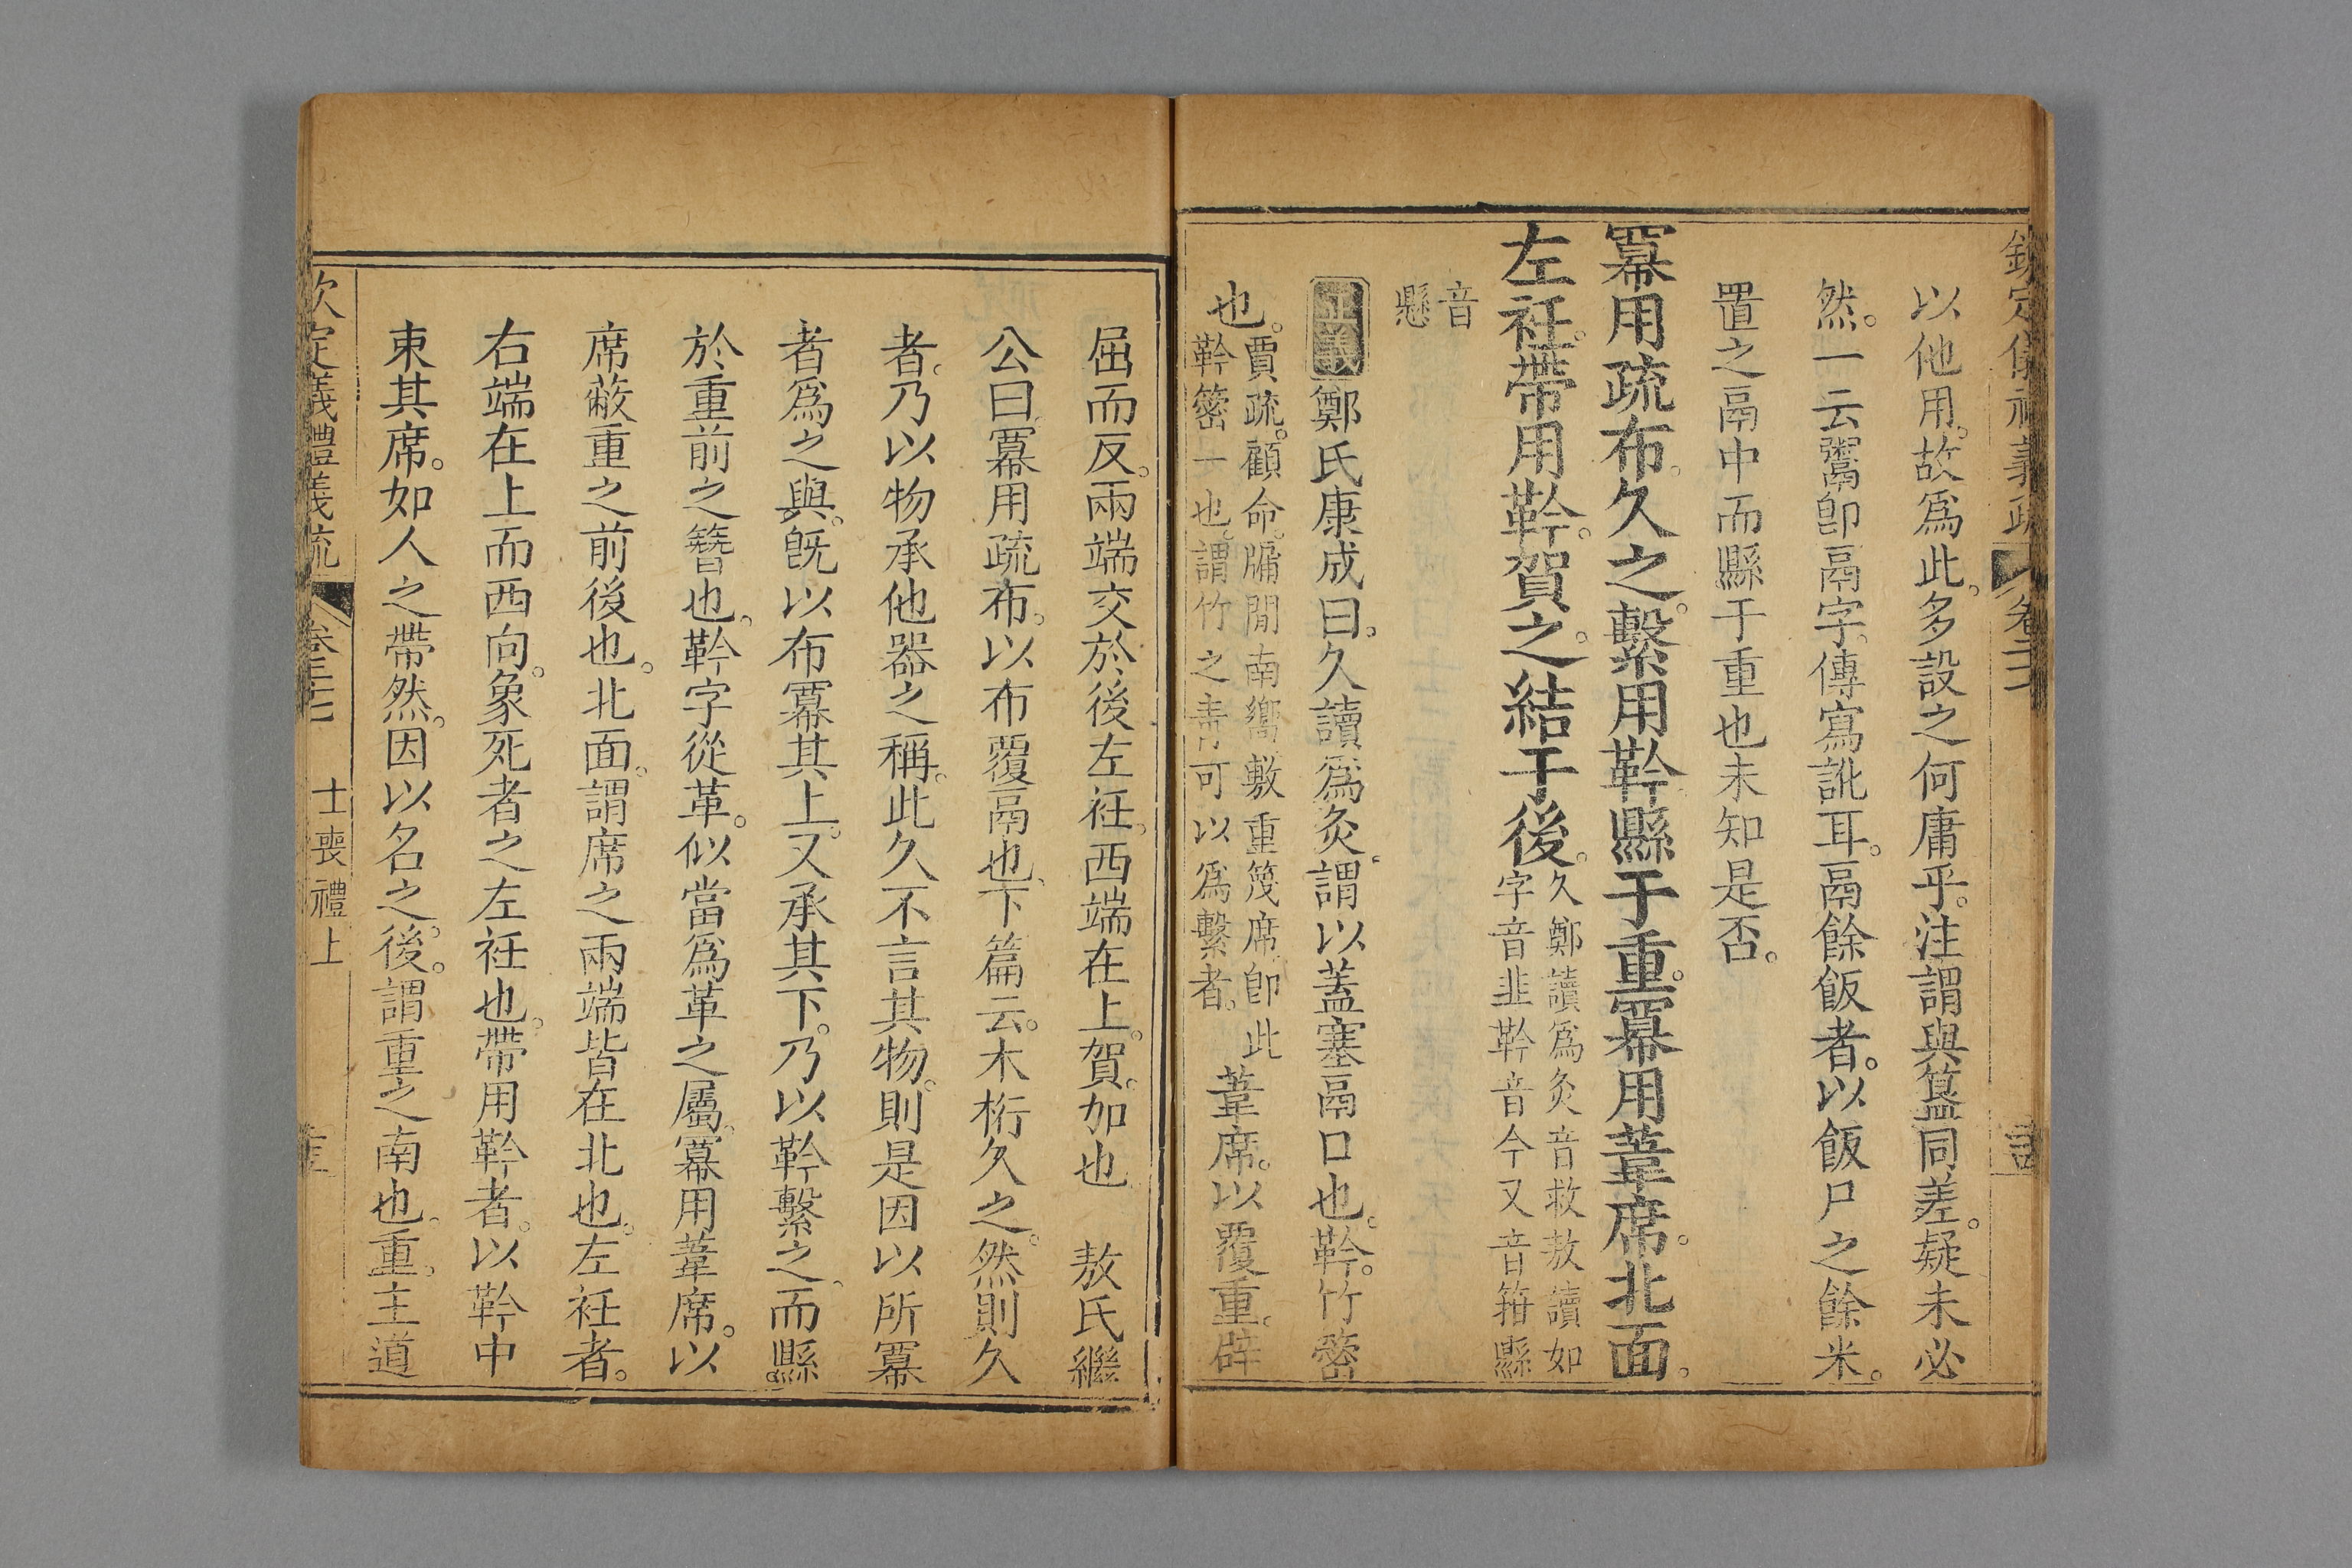 欽定儀禮義疏 卷二
以他用。故爲此。多設之何庸乎。注謂與簋同差。疑未必
然。一云鬻卽鬲字。傳寫訛耳。鬲餘飯者。以飯尸之餘米。
置之鬲中而縣于重也未知是否。
冪用疏布。久之。繫用靲縣于重。冪用葦席。北面。
左衽。帶用靲。賀之。結于後。久鄭讀爲灸音救敖讀如
字音韭靲音今又音箝縣
音
懸
正義 鄭氏康成曰。久讀爲灸。謂以蓋塞鬲口也。靲。竹䈼
也。賈疏。顧命。牖閒南嚮敷重篾席卽此
靲䈼一也。謂竹之靑可以爲繫者。葦席。以覆重。辟
屈而反。兩端交於後左衽。西端在上。賀。加也 敖氏繼
公曰。冪用疏布。以布覆鬲也。下篇云。木桁久之。然則久
者。乃以物承他器之稱。此久不言其物。則是因以所冪
者爲之與。旣以布冪其上。又承其下。乃以靲繫之。而縣
於重前之簪也。靲字從革。似當爲革之屬。冪用葦席。以
席蔽重之前後也。北面。謂席之兩端皆在北也。左衽者。
右端在上而西向。象死者之左衽也。帶用靲者。以靲中
束其席。如人之帶然。因以名之。後。謂重之南也。重。主道
欽定儀禮義疏 卷二十七 士喪禮上